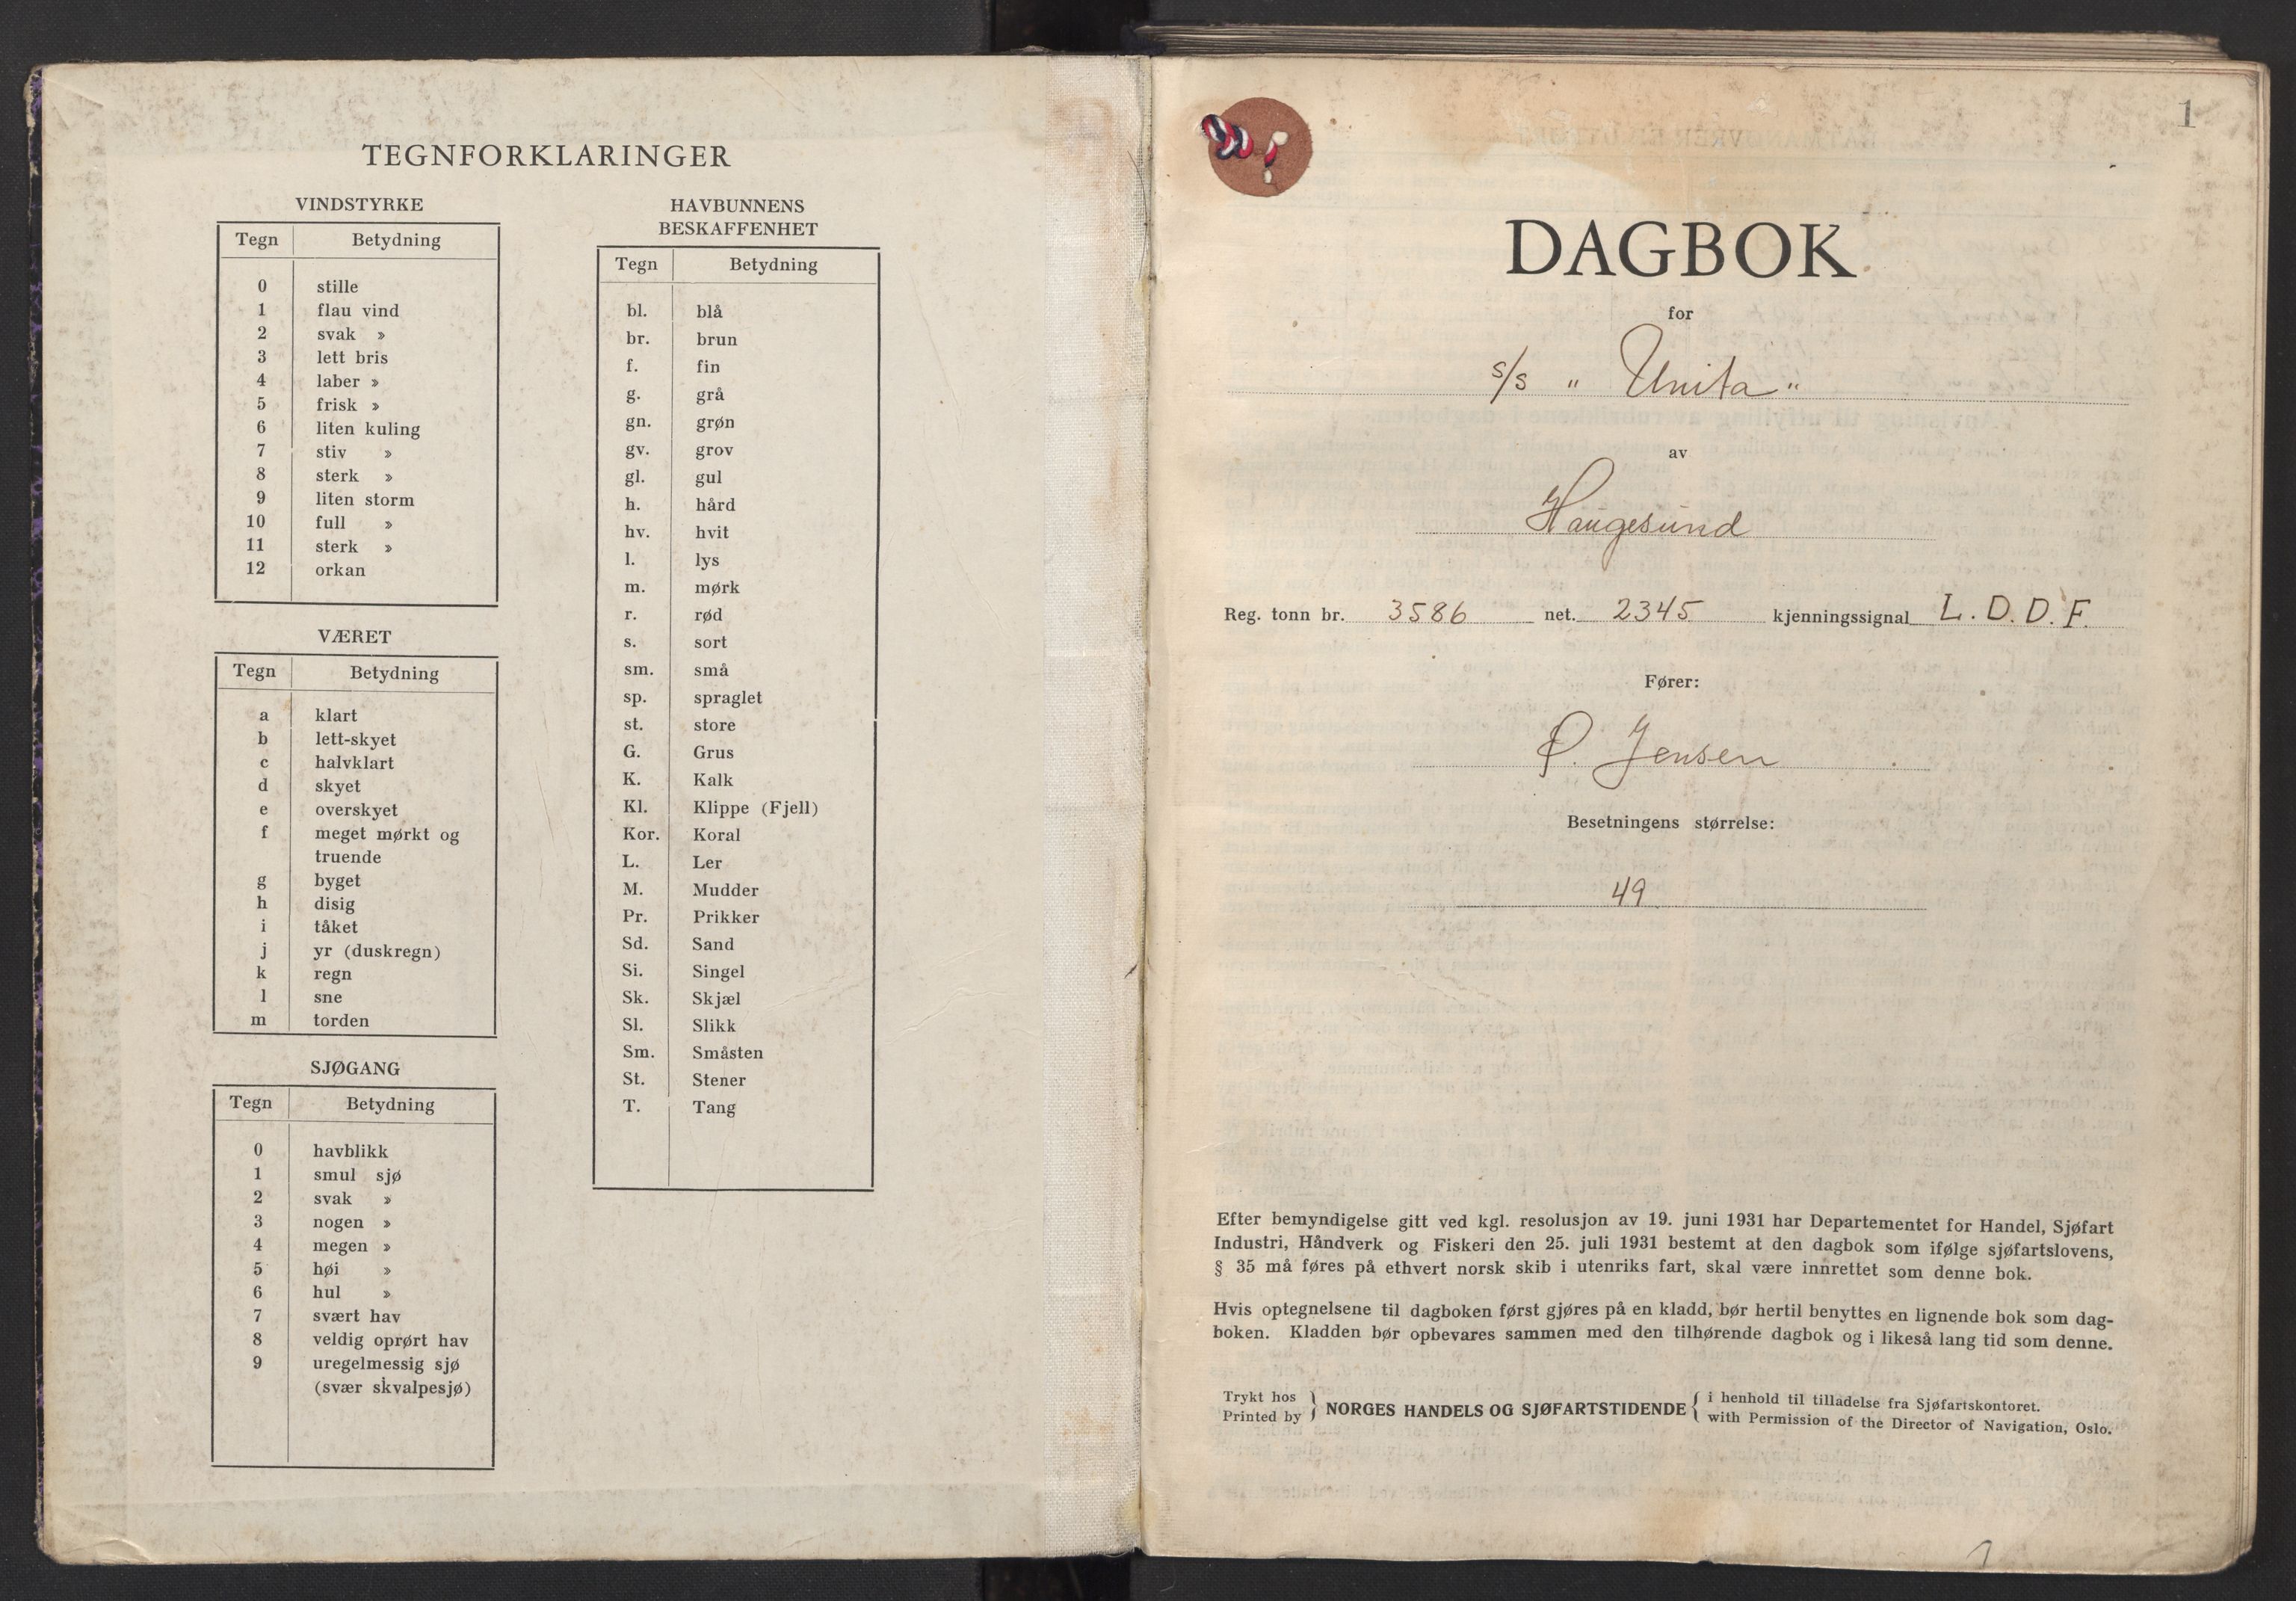 TEGNFORKLARINGER
VINDSTYRKE
Tegn Betydning
0 stille
1 flau vind
2 svak »
3 lett bris
4 laber »
5 frisk »
6 liten kuling
7 stiv »
8 sterk »
9 liten storm
10 full »
11 sterk »
12 orkan
VÆRET
Tegn Betydning
a klart
b lett-skyet
c halvklart
d skyet
e overskyet
f meget mørkt og
truende
g byget
h disig
i tåket
j yr (duskregn)
k regn
l sne
m torden
SJØGANG
Tegn Betydning
0 havblikk
1 smul sjø
2 svak »
3 nogen »
4 megen »
5 høi »
6 hul »
7 svært hav
8 veldig oprørt hav
9 uregelmessig sjø
(svær skvalpesjø)
HAVBUNNENS
BESKAFFENHET
Tegn Betydning
bl. blå
br. brun
f. fin
g. grå
gn. grøn
gv. grov
gl. gul
h. hård
hv. hvit
l. lys
m. mørk
r. rød
s. sort
sm. små
sp. spraglet
st. store
G. Grus
K. Kalk
Kl. Klippe (Fjell)
Kor. Koral
L. Ler
M. Mudder
Pr. Prikker
Sd. Sand
Si. Singel
Sk. Skjæl
Sl. Slikk
Sm. Småsten
St. Stener
T. Tang
1
DAGBOK
for
s/s " Unita "
av
Haugesund
Reg. tonn br. 3586 net. 2345 kjenningssignal L. D. D. F.
Fører:
Jensen
Besetningens størrelse:
49
Efter bemyndigelse gitt ved kgl. resolusjon av 19. juni 1931 har Departementet for Handel, Sjøfart
Industri, Håndverk og Fiskeri den 25. juli 1931 bestemt at den dagbok som ifølge sjøfartslovens,
§ 35 må føres på ethvert norsk skib i utenriks fart, skal være innrettet som denne bok.
Hvis optegnelsene til dagboken først gjøres på en kladd, bør hertil benyttes en lignende bok som dag-
boken. Kladden bør opbevares sammen med den tilhørende dagbok og i likeså lang tid som denne.
Trykt hos } NORGES HANDELS OG SJØFARTSTIDENDE { i henhold til tilladelse fra Sjøfartskontoret.
Printed by with Permission of the Director of Navigation, Oslo.